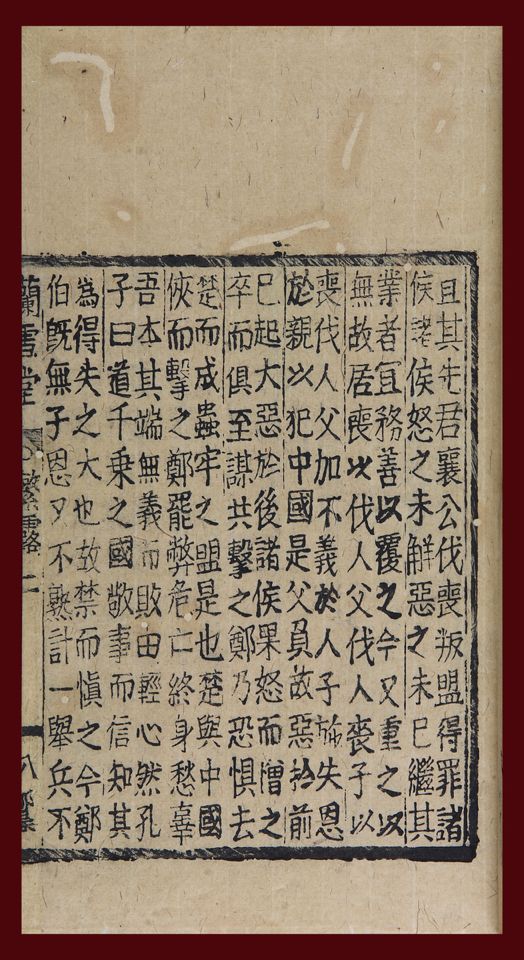 且其先君襄公伐喪叛盟得罪諸
侯諸侯怒之未解惡之未已繼其
業者宜務善以覆之今又重之以
無故居喪以伐人父伐人喪子以
喪伐人父加不義於人子施失恩
於親以犯中國是父負故惡於前
已起大惡於後諸侯果怒而憎之
卒而俱至謀共擊之鄭乃恐惧去
楚而成蟲牢之盟是也楚與中國
俠而擊之鄭罷弊危亡終身愁辜
吾本其端無義而敗田輕心然孔
子曰道千乗之國敬事而信知其
為得失之大也故禁而慎之今鄭
伯旣無子恩又不熟計一舉兵不
蘭雪堂 繁露二 八